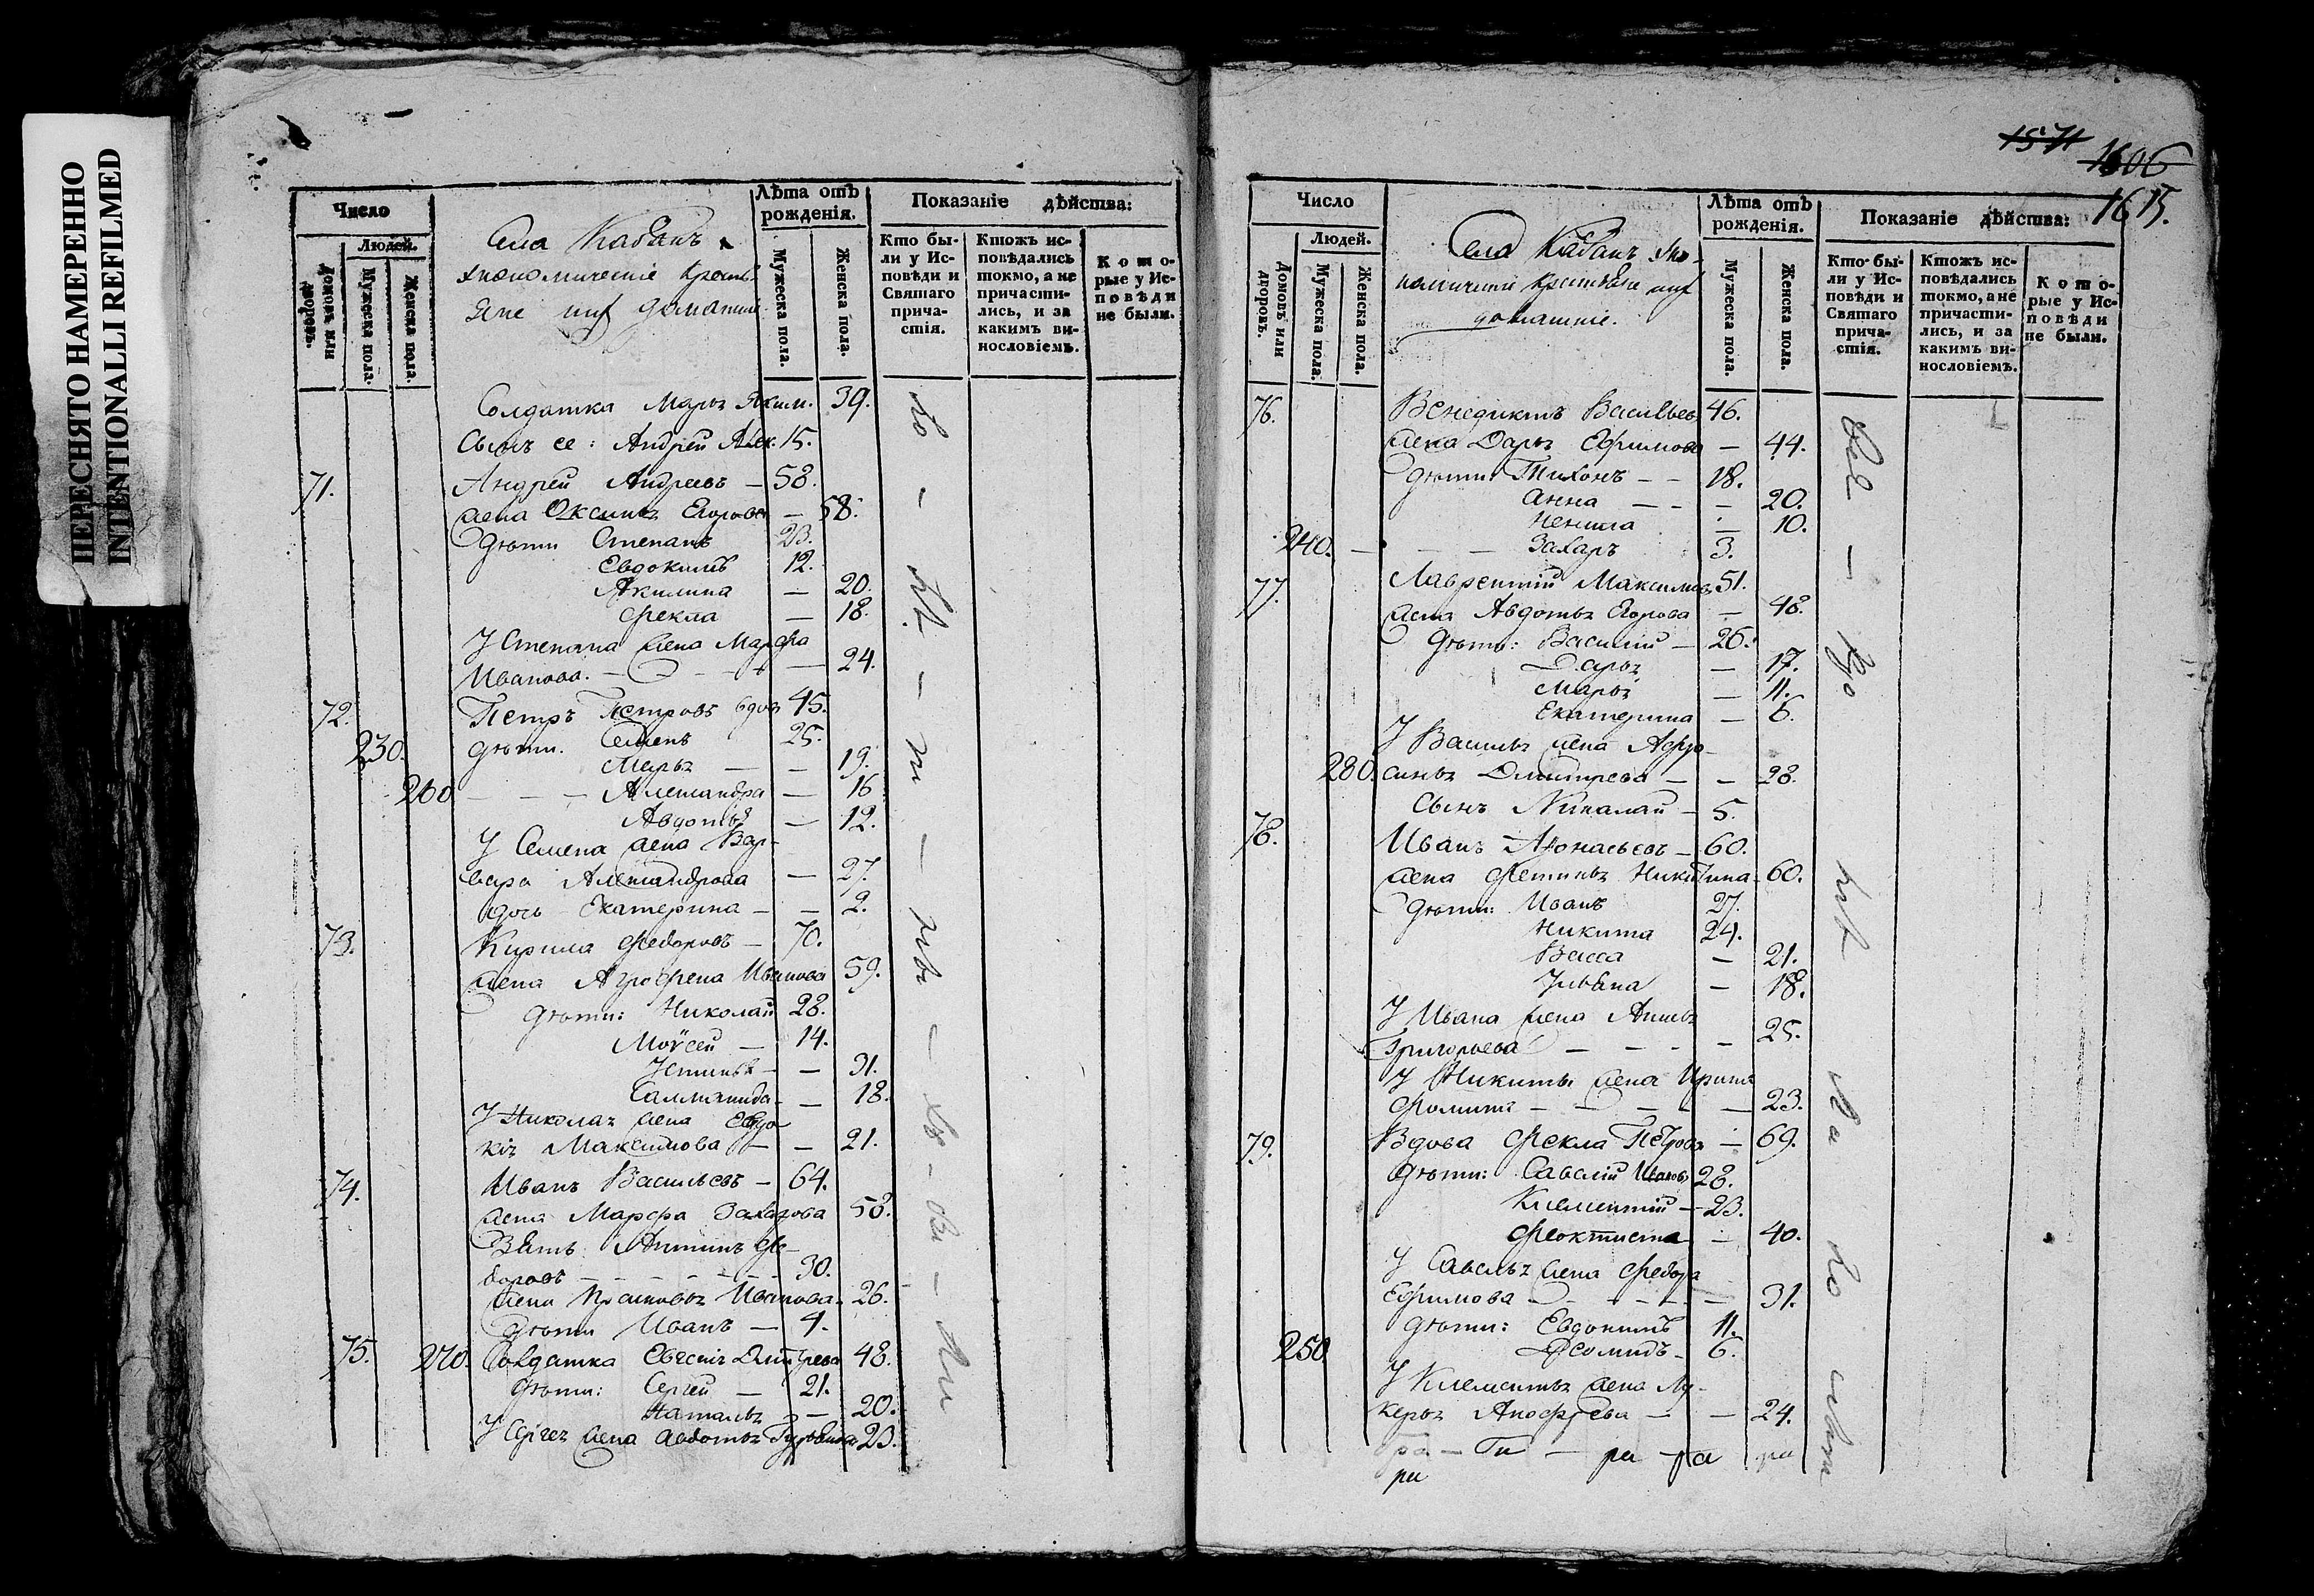 ПЕРЕСНЯТО НАМЕРЕННО
INTENTIONALLI REFILMED
Число
Людей.
Домовъ или дворовъ.
Мужеска пола.
Женска пола.
Села Кабанъ
экономическіе крестья
яне ихъ домашніе
Лѣта отъ рожденія.
Мужеска пола.
Женска пола.
Показаніе дѣйства:
Кто бы-
ли у Ис-
повѣди и
Святаго
прича-
стія.
Ктожъ ис-
повѣдались
токмо, а не
причасти-
лись, и за
какимъ ви-
нословіемъ.
Кото-
рые у Ис-
повѣди
не были.
Солдатка Марья Яким. 39.
Сынъ ее: Андрей Алек. 15.
71. Андрей Андреевъ — 58.
жена Оксинья Егорова — 58.
Дѣти Степанъ 23.
Евдокимъ 12.
Акилина — 20.
Фекла — 18.
У Степана жена Марфа
Иванова. — 24.
72. Петръ Петровъ вдов 45.
230. дѣти. Семенъ 25.
Марья — — 19.
260 — — — Александра — 16
Авдотья — 12.
У Семена жена Вар-
вара Александрова — 27.
дочь Екатерина — — 2.
73. Кирила Федоровъ — 70.
жена Агрофена Иванова 59.
дѣти: Николай 28.
Моѵсей — 14.
Устинья — — 31.
Саламанида — 18.
У Николая жена Евдо
кія Максимова — — 21.
74. Иванъ Васильевъ — 64.
жена Марфа Захарова 58.
Зять Антипъ Фе-
доровъ — — — — — 30.
жена Прасковья Иванова. 26.
Дѣти Иванъ — 4.
75. 270. Солдатка Евгенія Дмитрева 48.
дѣти: Сергей — 21.
Наталья — 20.
У Сергея жена Авдотья 23.
1571
1606
1615.
Число
Людей.
Домовъ или дворовъ.
Мужеска пола.
Женска пола.
Села Кабанъ эко-
номическіе крестьяне ихъ
домашніе.
Лѣта отъ рожденія.
Мужеска пола.
Женска пола.
Показаніе дѣйства:
Кто бы-
ли у Ис-
повѣди и
Святаго
прича-
стія.
Ктожъ ис-
повѣдались
токмо, а не
причасти-
лись, и за
какимъ ви-
нословіемъ.
Кото-
рые у Ис-
повѣди
не были.
76. Венедиктъ Васильев 46.
жена Дарья Ефимова — 44.
Дѣти: Тихонъ — — 18.
Анна — — — 20.
Ненила — 10.
240. — — — Захаръ 3.
77. Лаврентій Максимов 51.
жена Авдотья Егорова — 48.
Дѣти: Василій — 26.
Дарья — 17.
Марья — 11.
Екатерина — 6.
У Василья жена Афро-
280. синья Дмитрева — — 28.
Сынъ Николай — 5.
78. Иванъ Афонасьевъ — 60.
жена Фетинья Никитина 60.
Дѣти: Иванъ 27.
Никита 24.
Васса — 21.
Ульяна — 18.
У Ивана жена Анисья
Григорьева — — — — 25.
У Никиты жена Ирина
Фомина — — — — — 23.
79. Вдова Фекла Петрова — 69.
дѣти: Савелій Иванов 28.
Климентій — 23.
Феоктиста — 40.
У Савелья жена Федора
Ефимова — — — — — 31.
дѣти: Евдокимъ 11.
250 Деомидъ — 6.
У Климентья жена Лу-
керья — — 24.